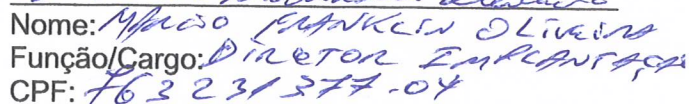 Nome: Márcio FRANKLIN OLIVEIRA
Função/Cargo: DIRETOR IMPLANTAÇÃ
CPF: 763231377-04